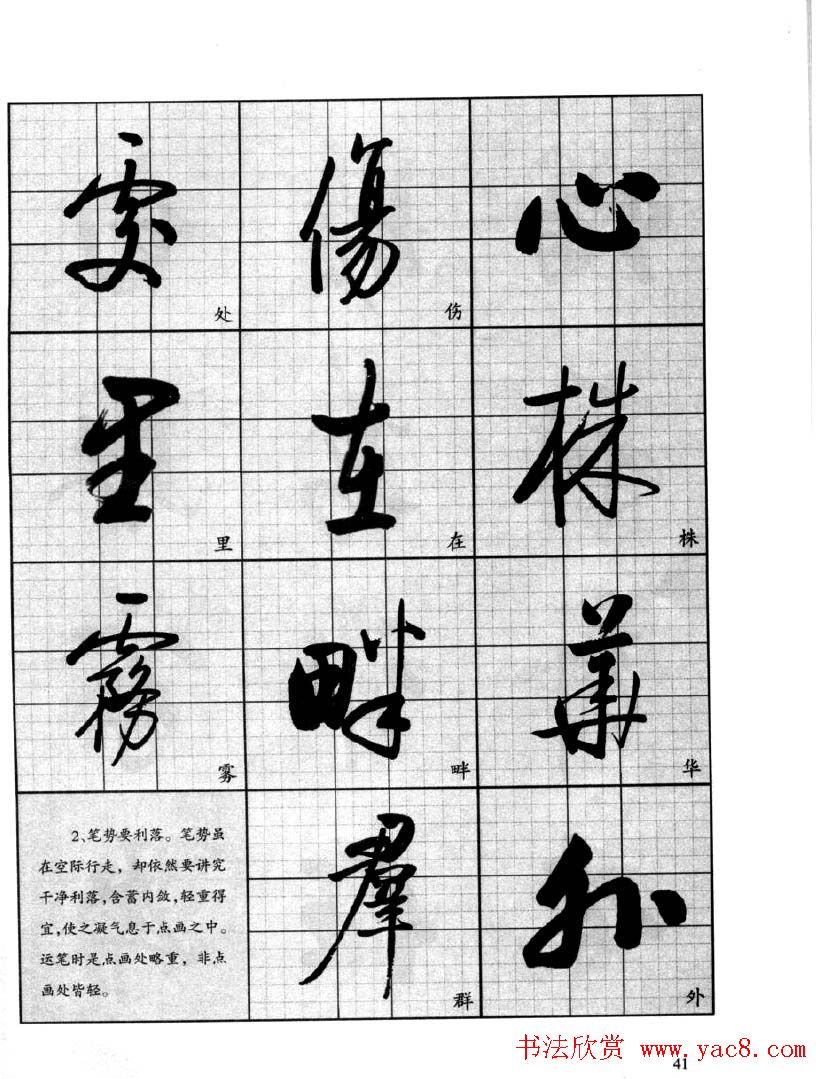 處 傷 心
处 伤
里 在 株
里 在 株
霧 畔 華
雾 畔 华
群 外
群 外
2、笔势要利落。笔势虽
在空际行走，却依然要讲究
干净利落，含蓄内敛，轻重得
宜，使之凝气息于点画之中。
运笔时是点画处略重，非点
画处皆轻。
书法欣赏 www.yac8.com
41